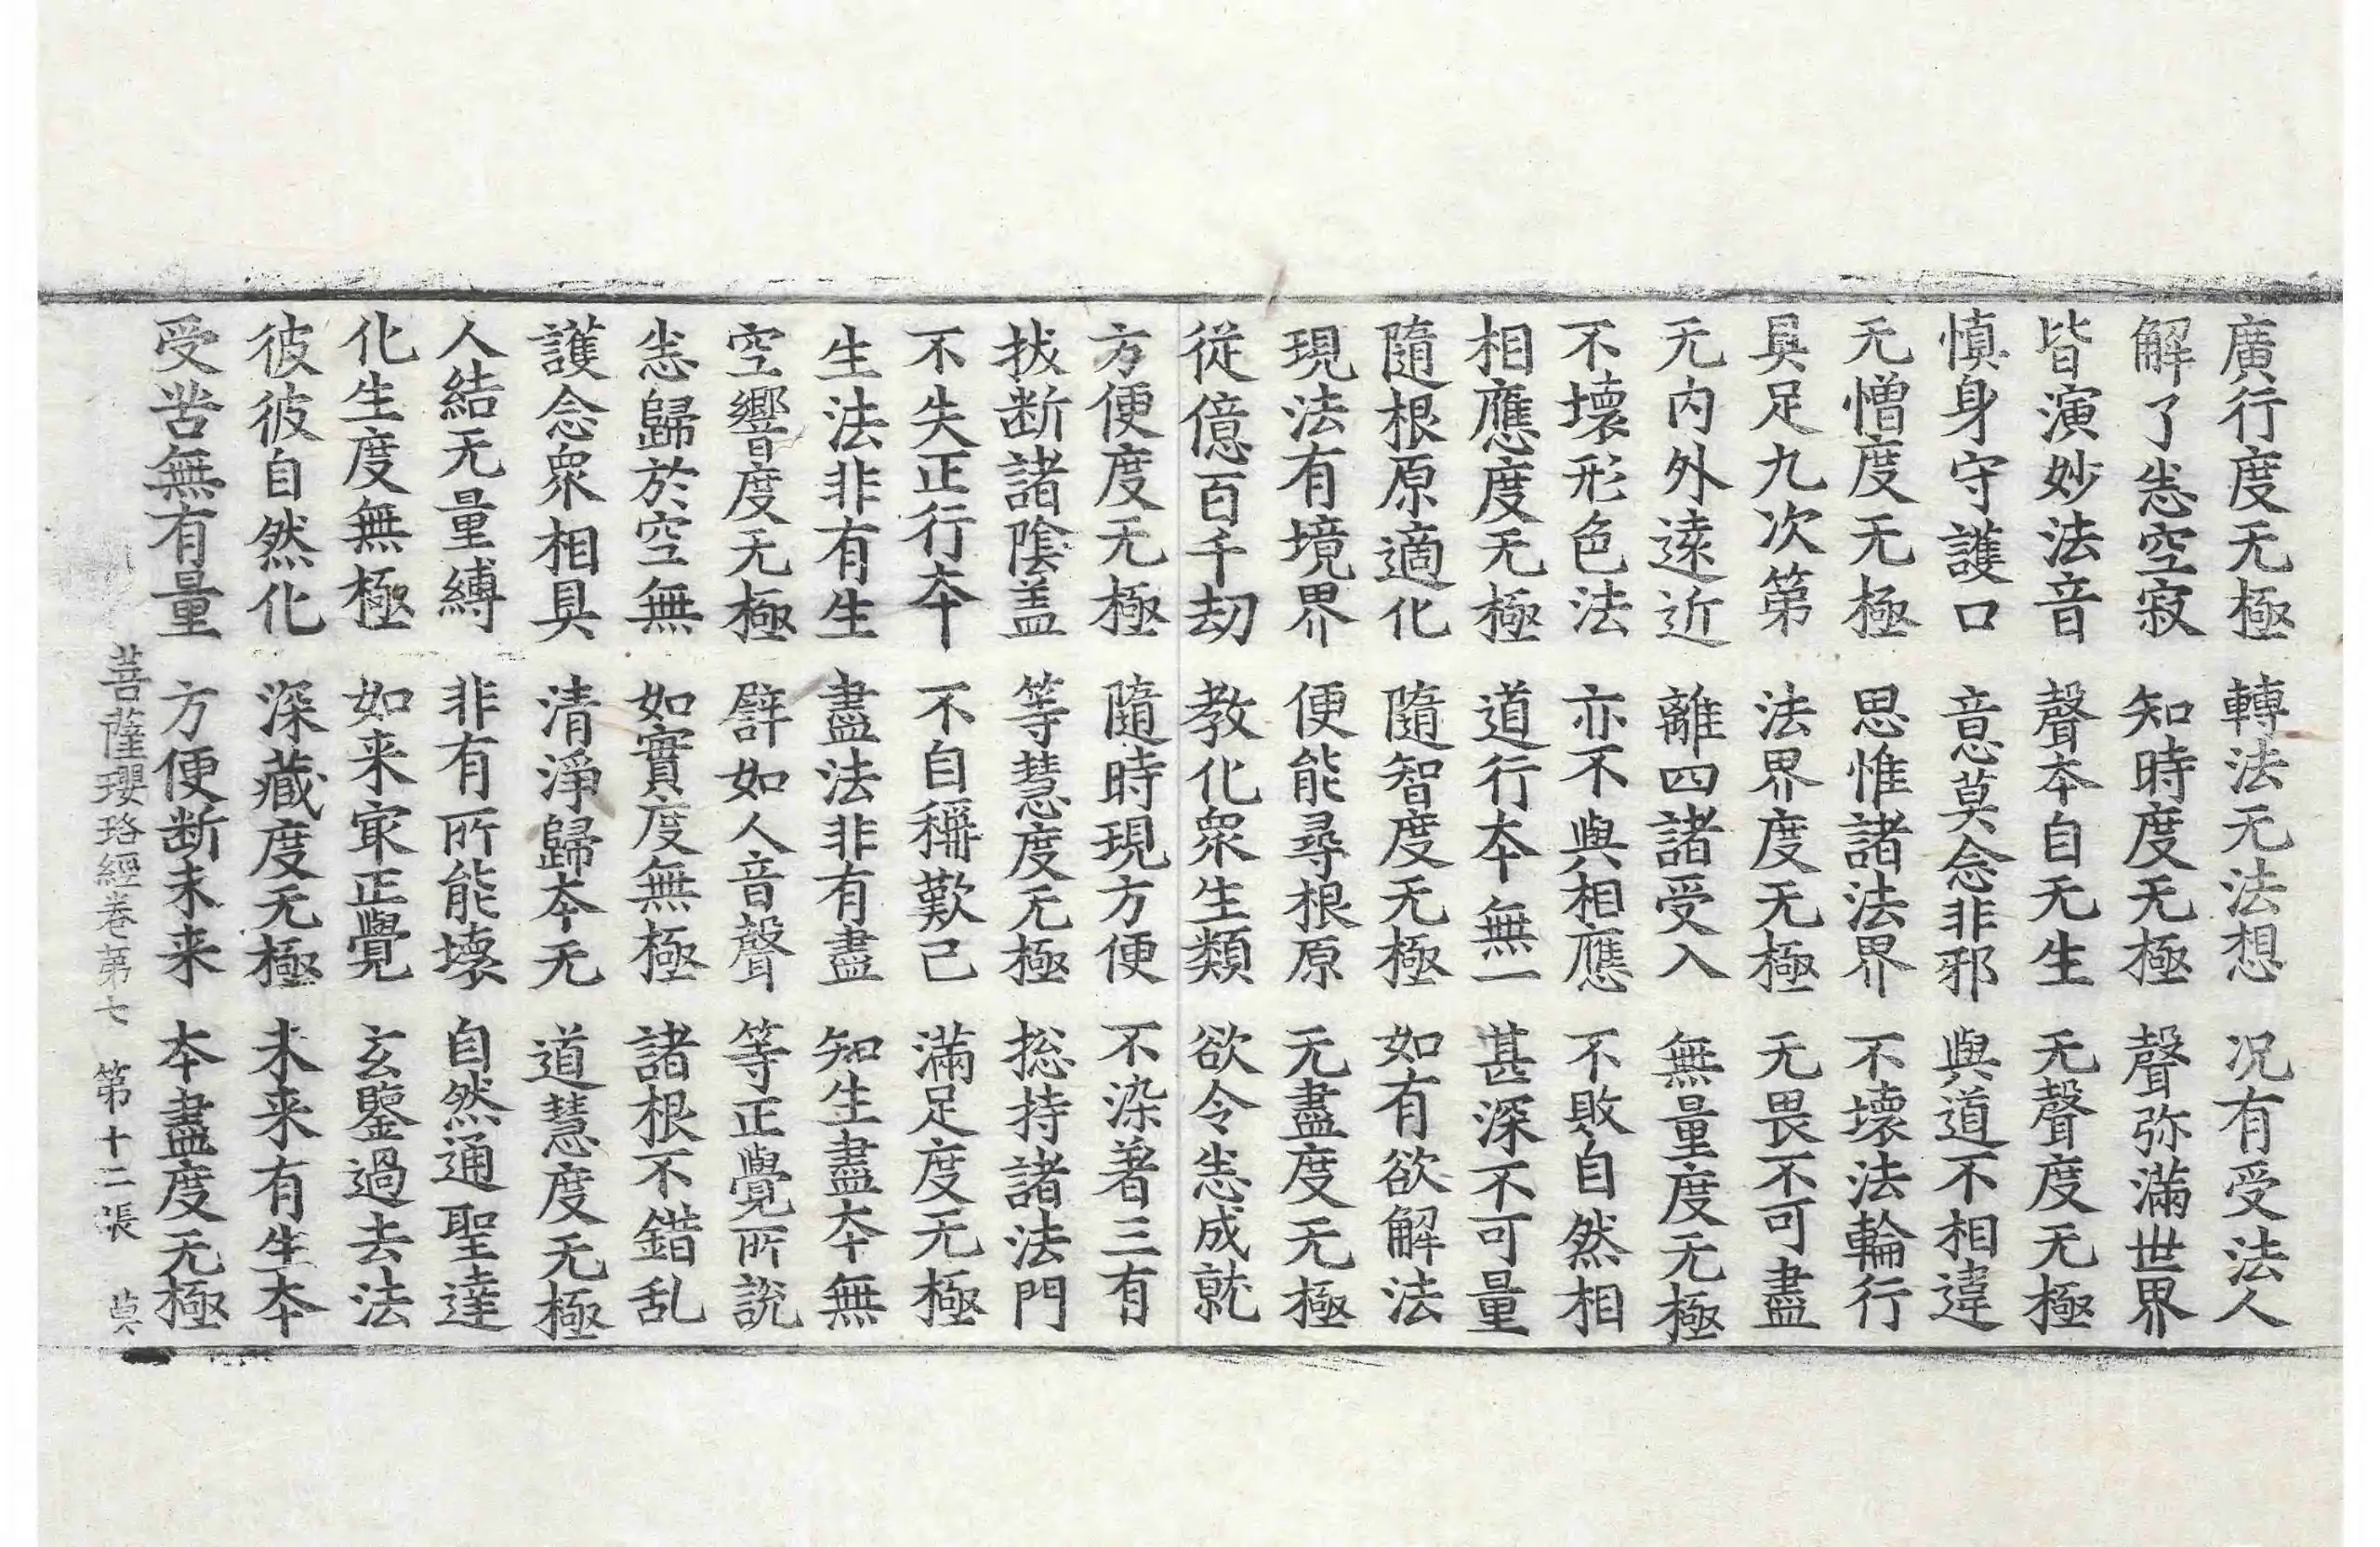 廣行度无極 轉法无法想 况有受法人
解了恚空寂 知時度无極 聲弥滿世界
皆演妙法音 聲夲自无生 无聲度无極
慎身守護口 意莫念非邪 與道不相違
无憎度无極 思惟諸法界 不壞法輪行
具足九次第 法界度无極 无畏不可盡
无内外遠近 離四諸受入 無量度无極
不壞形色法 亦不與相應 不敗自然相
相應度无極 道行夲無一 甚深不可量
隨根原適化 隨智度无極 如有欲解法
現法有境界 便能尋根原 无盡度无極
從億百千劫 教化衆生類 欲令恚成就
方便度无極 隨時現方便 不染著三有
拔断諸陰盖 等慧度无極 捴持諸法門
不失正行夲 不自稱歎己 滿足度无極
生法非有生 盡法非有盡 知生盡夲無
空響度无極 譬如人音聲 等正覺所說
恚歸於空無 如實度無極 諸根不錯乱
護念衆相具 清淨歸夲无 道慧度无極
人結无量縛 非有所能壞 自然通聖達
化生度無極 如来㝡正覺 玄鑒過去法
彼彼自然化 深藏度无極 未来有生夲
受苦無有量 方便断未来 夲盡度无極
菩薩瓔珞經卷第七 第十二張 莫